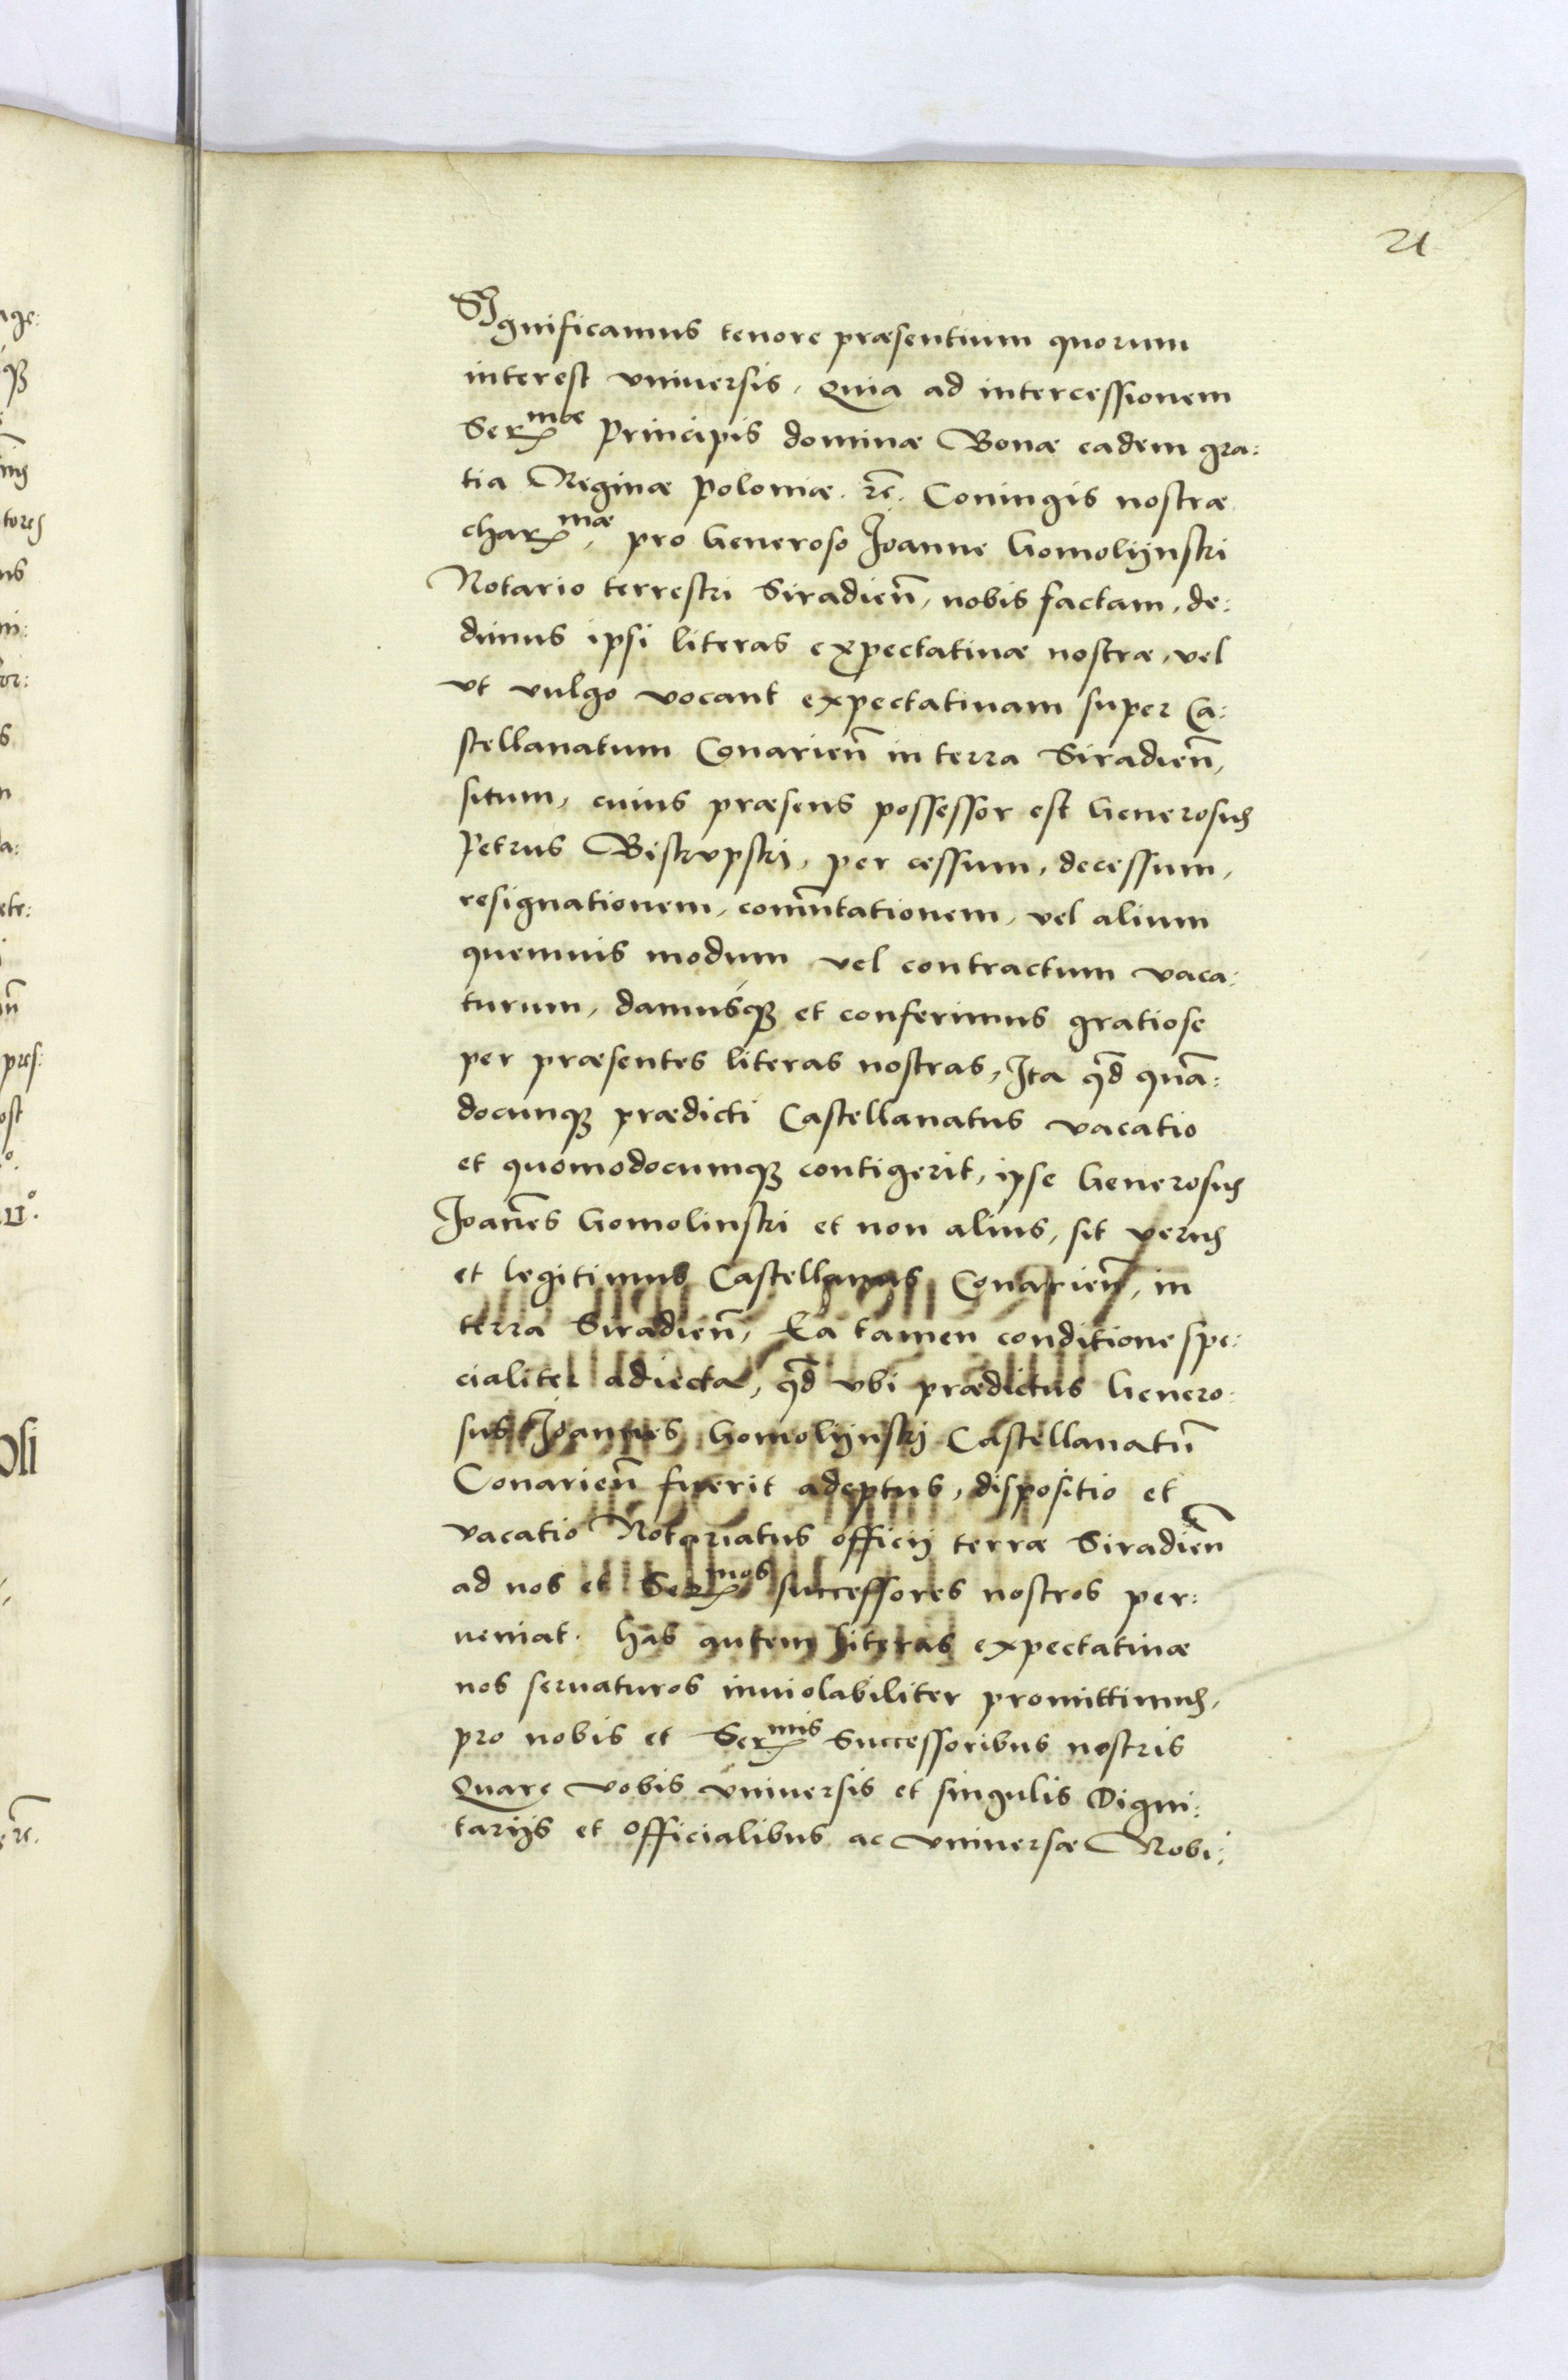 21
Significamus tenore præsentium quorum
interest vniuersis, Quia ad intercessionem
Serᵐᵃᵉ Principis dominæ Bonæ eadem gra:
tia Reginæ Poloniæ. rc̃. Coniugis nostræ
charᵐᵃᵉ, pro Generoso Joanne Gomolijnski
Notario terrestri Siradien̄, nobis factam, de:
dimus ipsi literas expectatiuæ nostræ, vel
vt vulgo vocant expectatiuam super Ca:
stellanatum Conarien̄ in terra Siradien̄,
situm, cuius præsens possessor est Generosus
Petrus Biskvpski, per cessum, decessum,
resignationem, com̄utationem, vel alium
quemuis modum vel contractum vaca:
turum, damusq3 et conferimus gratiose
per præsentes literas nostras, Ita q̄d quā:
docunq3 prædicti Castellanatus vacatio
et quomodocumq3 contigerit, ipse Generosus
Joan̄es Gomolinski et non alius, sit verus
et legitimus Castellanus Conarien̄, in
terra Siradien̄, Ea tamen conditione spe:
cialiter adiecta, q̄d vbi prædictus Genero:
sus Joannes Gomolijnskj Castellanatū
Conarien̄ fuerit adeptus, dispositio et
vacatio Notariatus officij terræ Siradien̄
ad nos et Serᵐᵒˢ successores nostros per:
ueniat. Has autem literas expectatiuæ
nos seruaturos inuiolabiliter promittimus,
pro nobis et Serᵐⁱˢ Successoribus nostris
Quare vobis vniuersis et singulis Digni:
tarijs et Officialibus ac vniuersæ Nobi: